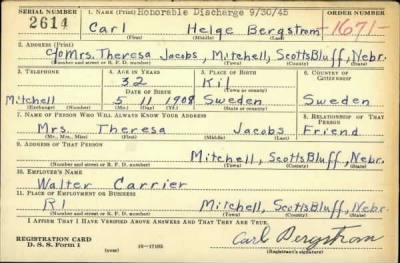 SERIAL NUMBER 1. NAME (Print) Honorable Discharge 9/30/45 ORDER NUMBER
2614 Carl Helge Bergstrom -1671-
(First) (Middle) (Last)
2. ADDRESS (Print)
c/o Mrs. Theresa Jacobs, Mitchell, ScottsBluff, Nebr.
(Number and street or R. F. D. number) (Town) (County) (State)
3. TELEPHONE 4. AGE IN YEARS 5. PLACE OF BIRTH 6. COUNTRY OF CITIZENSHIP
32 Kil
DATE OF BIRTH (Town or county)
Mitchell 5 11 1908 Sweden Sweden
(Exchange) (Number) (Mo.) (Day) (Yr.) (State or country)
7. NAME OF PERSON WHO WILL ALWAYS KNOW YOUR ADDRESS 8. RELATIONSHIP OF THAT PERSON
Mrs. Theresa Jacobs Friend
(Mr., Mrs., Miss) (First) (Middle) (Last)
9. ADDRESS OF THAT PERSON
Mitchell, ScottsBluff, Nebr.
(Number and street or R. F. D. number) (Town) (County) (State)
10. EMPLOYER'S NAME
Walter Carrier
11. PLACE OF EMPLOYMENT OR BUSINESS
R1 Mitchell, ScottsBluff, Nebr.
(Number and street or R. F. D. number) (Town) (County) (State)
I AFFIRM THAT I HAVE VERIFIED ABOVE ANSWERS AND THAT THEY ARE TRUE.
REGISTRATION CARD Carl Bergstrom
D. S. S. Form 1 (over) 16-17105 (Registrant's signature)